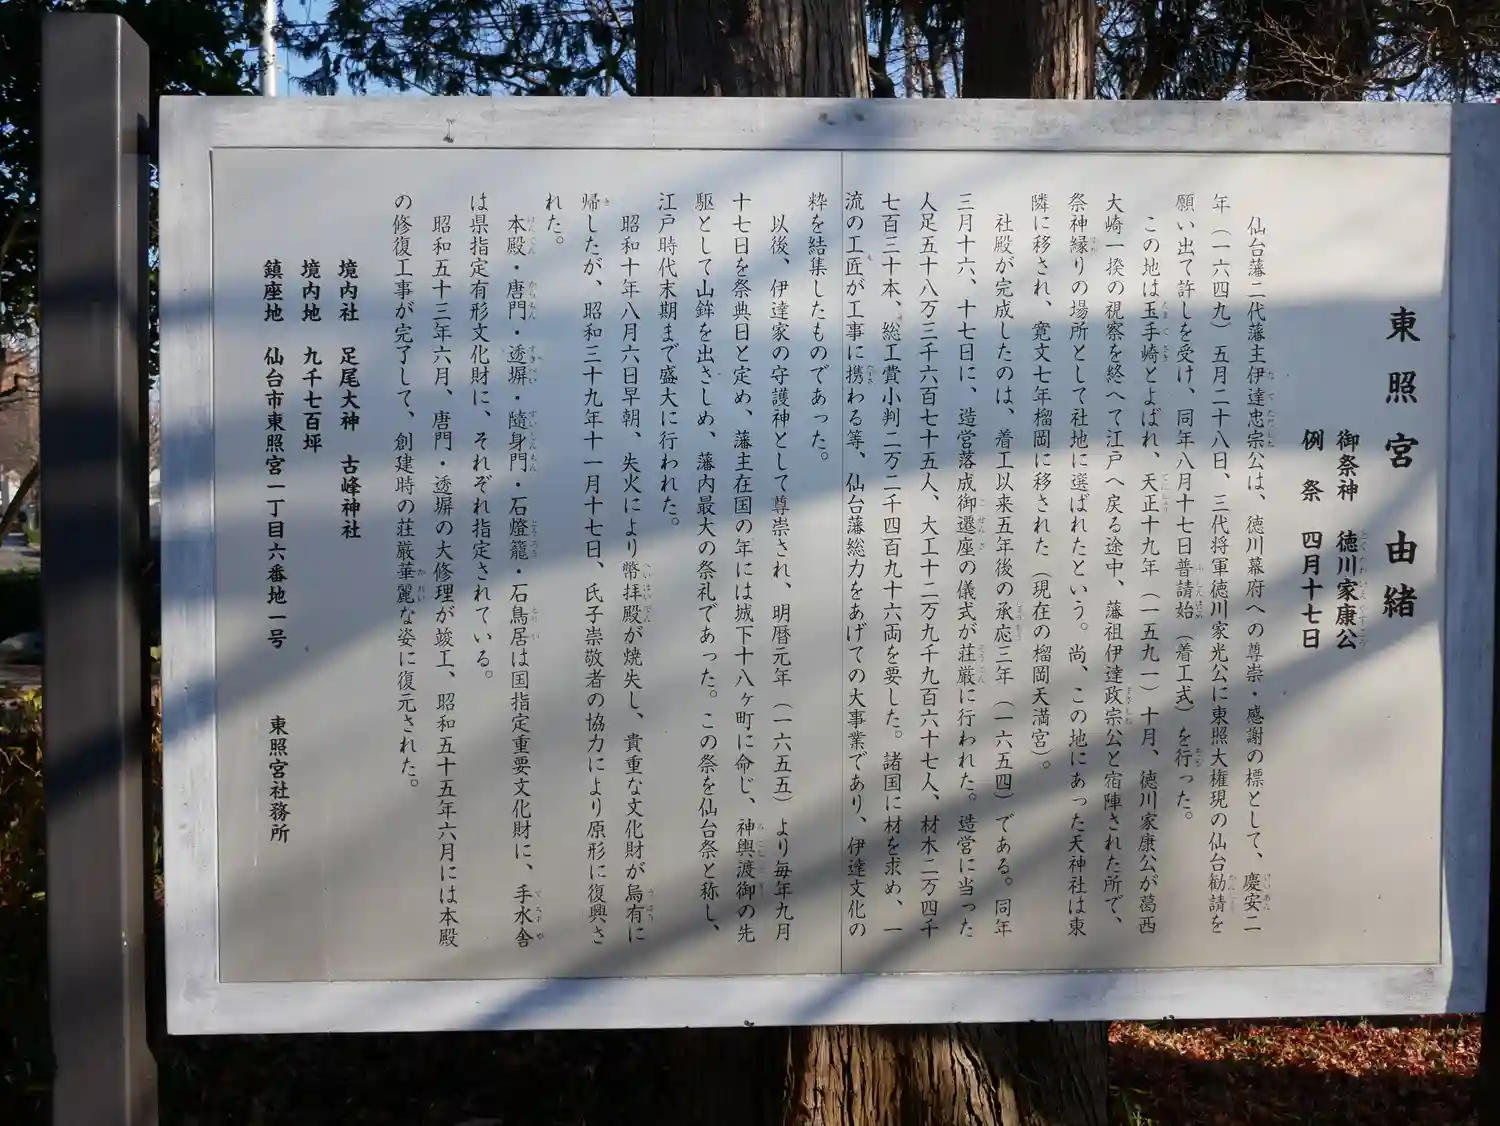 東照宮 由緒
御祭神 徳川家康公
例祭 四月十七日
仙台藩二代藩主伊達忠宗公は、徳川幕府への尊崇・感謝の標として、慶安二
年（一六四九）五月二十八日、三代将軍徳川家光公に東照大権現の仙台勧請を
願い出て許しを受け、同年八月十七日普請始（着工式）を行った。
この地は玉手崎とよばれ、天正十九年（一五九一）十月、徳川家康公が葛西
大崎一揆の視察を終へて江戸へ戻る途中、藩祖伊達政宗公と宿陣された所で、
祭神縁りの場所として社地に選ばれたという。尚、この地にあった天神社は東
隣に移され、寛文七年榴岡に移された（現在の榴岡天満宮）。
社殿が完成したのは、着工以来五年後の承応三年（一六五四）である。同年
三月十六、十七日に、造営落成御遷座の儀式が荘厳に行われた。造営に当った
人足五十八万三千六百七十五人、大工十二万九千九百六十七人、材木二万四千
七百三十本、総工費小判二万二千四百九十六両を要した。諸国に材を求め、一
流の工匠が工事に携わる等、仙台藩総力をあげての大事業であり、伊達文化の
粋を結集したものであった。
以後、伊達家の守護神として尊崇され、明暦元年（一六五五）より毎年九月
十七日を祭典日と定め、藩主在国の年には城下十八ヶ町に命じ、神輿渡御の先
駆として山鉾を出さしめ、藩内最大の祭礼であった。この祭を仙台祭と称し、
江戸時代末期まで盛大に行われた。
昭和十年八月六日早朝、失火により幣拝殿が焼失し、貴重な文化財が烏有に
帰したが、昭和三十九年十一月十七日、氏子崇敬者の協力により原形に復興さ
れた。
本殿・唐門・透塀・随身門・石燈籠・石鳥居は国指定重要文化財に、手水舎
は県指定有形文化財に、それぞれ指定されている。
昭和五十三年六月、唐門・透塀の大修理が竣工、昭和五十五年六月には本殿
の修復工事が完了して、創建時の荘厳華麗な姿に復元された。
境内社 足尾大神 古峰神社
境内地 九千七百坪
鎮座地 仙台市東照宮一丁目六番地一号 東照宮社務所